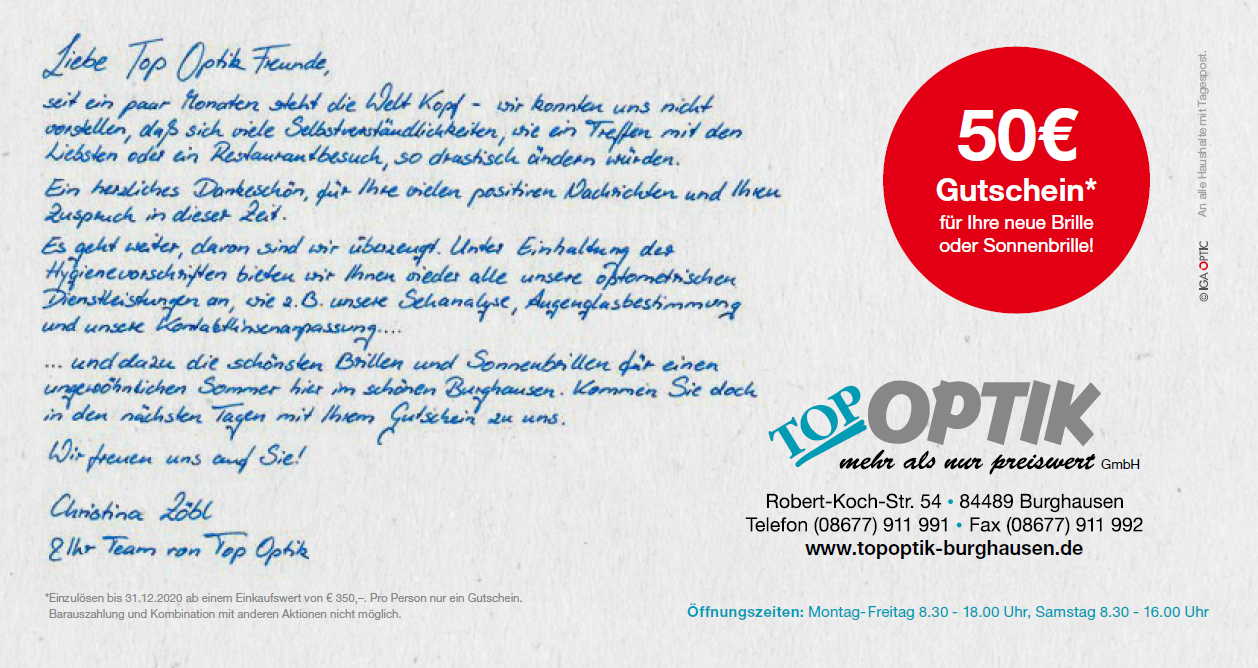 Liebe Top Optik Freunde,
seit ein paar Monaten steht die Welt Kopf - wir konnten uns nicht
vorstellen, daß sich viele Selbstverständlichkeiten, wie ein Treffen mit den
Liebsten oder ein Restaurantbesuch, so drastisch ändern würden.
Ein herzliches Dankeschön, für Ihre vielen positiven Nachrichten und Ihren
Zuspruch in dieser Zeit.
Es geht weiter, davon sind wir überzeugt. Unter Einhaltung der
Hygienevorschriften bieten wir Ihnen wieder alle unsere optometrischen
Dienstleistungen an, wie z.B. unsere Sehanalyse, Augenglasbestimmung
und unsere Kontaktlinsenanpassung....
... und dazu die schönsten Brillen und Sonnenbrillen für einen
ungewöhnlichen Sommer hier im schönen Burghausen. Kommen Sie doch
in den nächsten Tagen mit Ihrem Gutschein zu uns.
Wir freuen uns auf Sie!
Christina Zöbl
& Ihr Team von Top Optik
*Einzulösen bis 31.12.2020 ab einem Einkaufswert von € 350,–. Pro Person nur ein Gutschein.
Barauszahlung und Kombination mit anderen Aktionen nicht möglich.
50€
Gutschein*
für Ihre neue Brille
oder Sonnenbrille!
© IGA OPTIC An alle Haushalte mit Tagespost.
TOP OPTIK
mehr als nur preiswert GmbH
Robert-Koch-Str. 54 • 84489 Burghausen
Telefon (08677) 911 991 • Fax (08677) 911 992
www.topoptik-burghausen.de
Öffnungszeiten: Montag-Freitag 8.30 - 18.00 Uhr, Samstag 8.30 - 16.00 Uhr